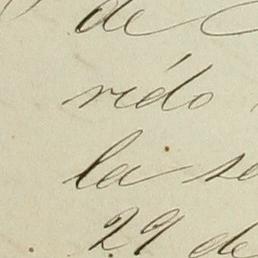 de
rido
la se
29 de